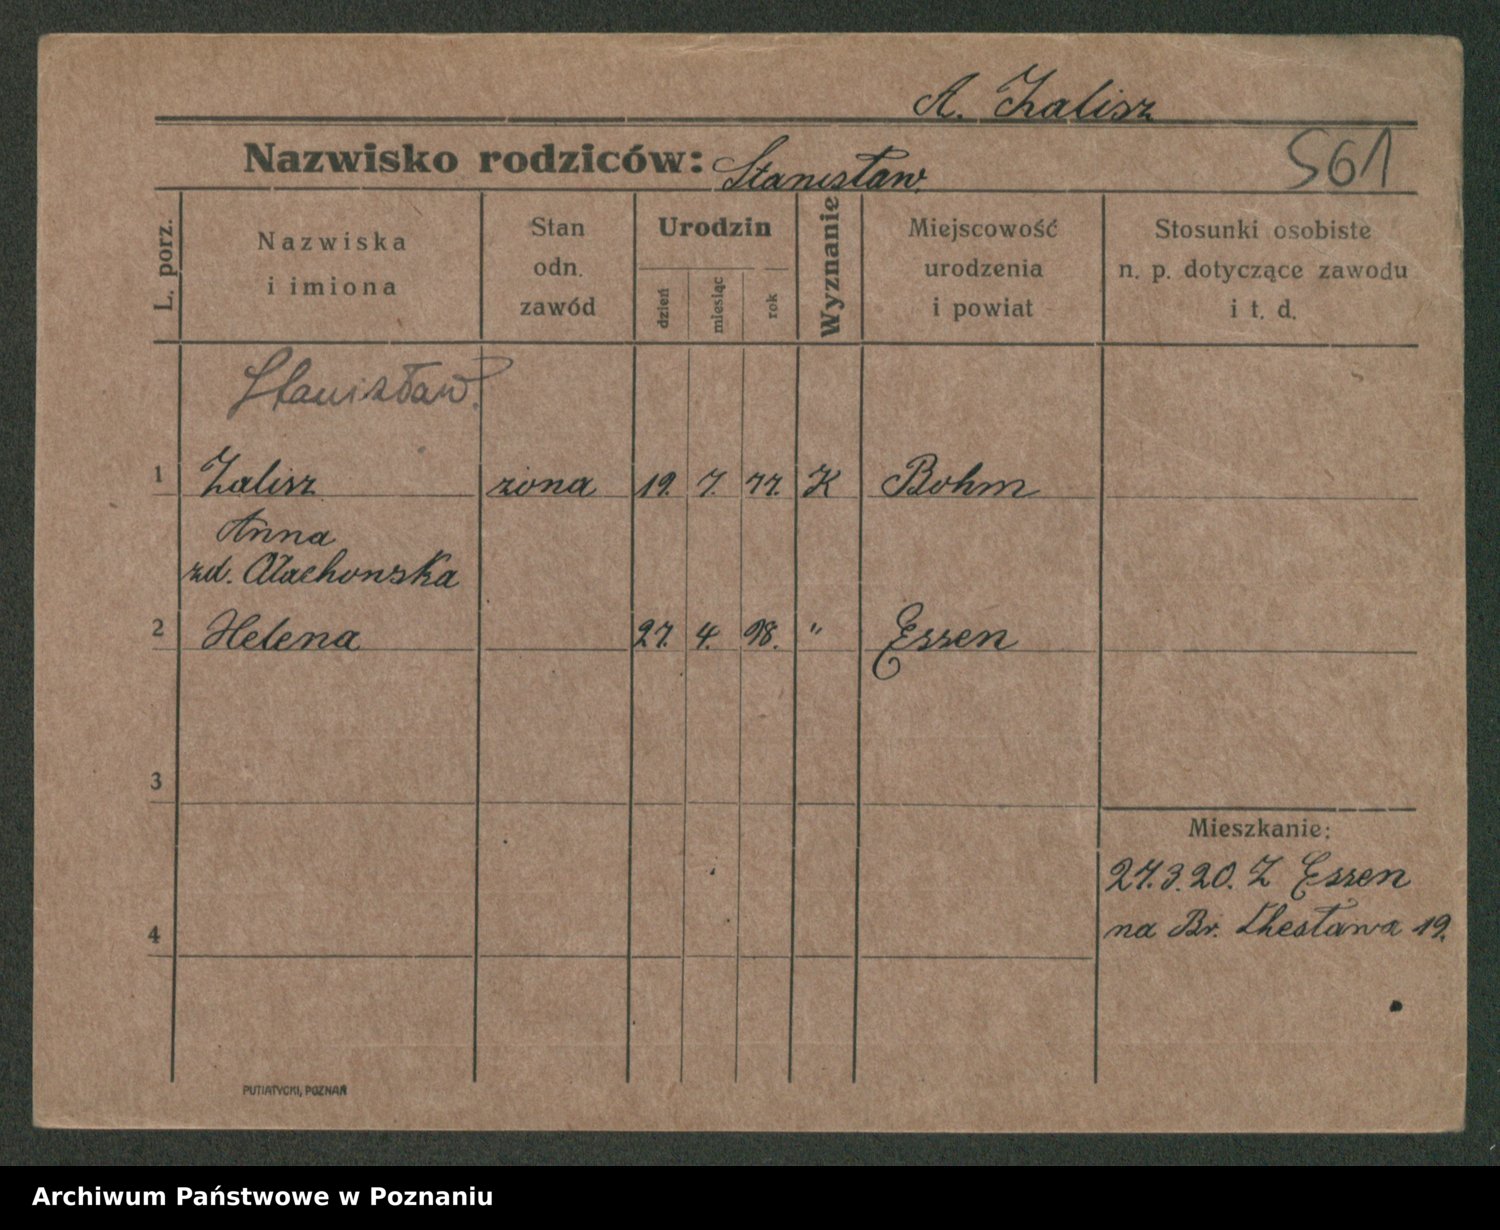 A. Zalisz
Nazwisko rodziców: Stanisław
561
L. porz.
Nazwiska
i imiona
Stan
odn.
zawód
Urodzin
dzień
miesiąc
rok
Wyznanie
Miejscowość
urodzenia
i powiat
Stosunki osobiste
n. p. dotyczące zawodu
i t. d.
Stanisław
1 Zalisz żona 19. 7. 77. K Bohm
Anna
zd.
2 Helena 27. 4. 98. " Essen
3
Mieszkanie:
27.3.20. Z Essen
na Br. 19.
4
PUTIATYCKI, POZNAŃ
Archiwum Państwowe w Poznaniu